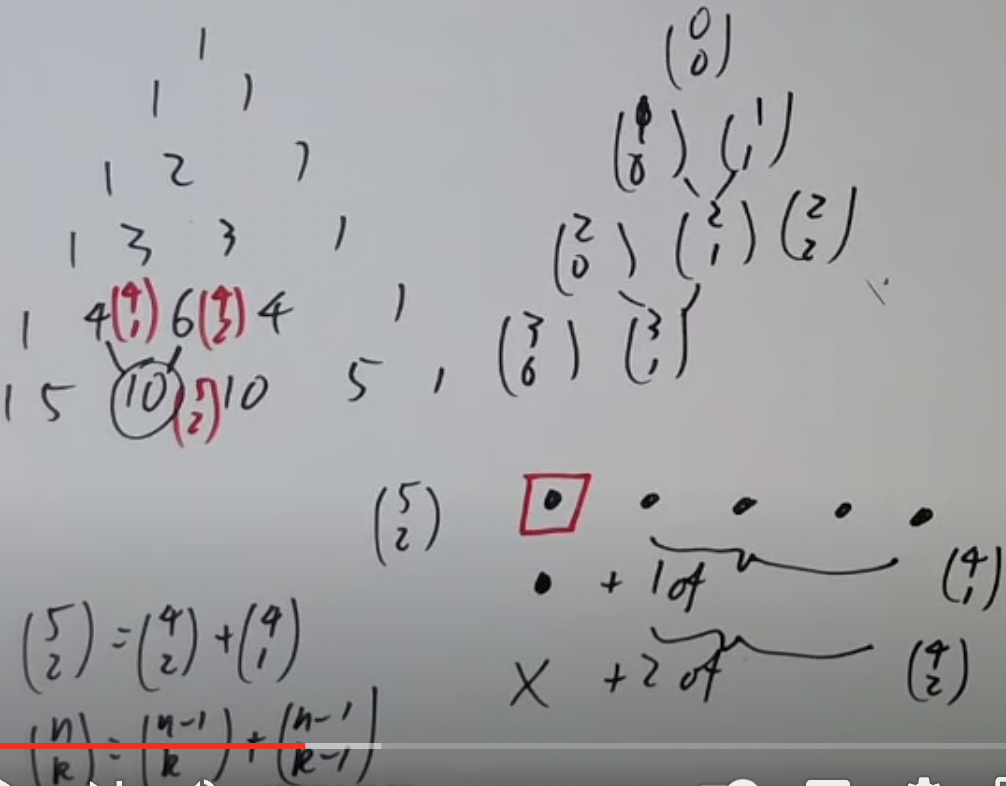 1
1 1
1 2 1
1 3 3 1
1 4 (4 1) 6 (4 2) 4 1
1 5 10 (5 2) 10 5 1
(0 0)
(1 0) (1 1)
(2 0) (2 1) (2 2)
(3 0) (3 1)
(5 2)
• + 1 of (4 1)
X + 2 of (4 2)
(5 2) = (4 2) + (4 1)
(n k) = (n-1 k) + (n-1 k-1)